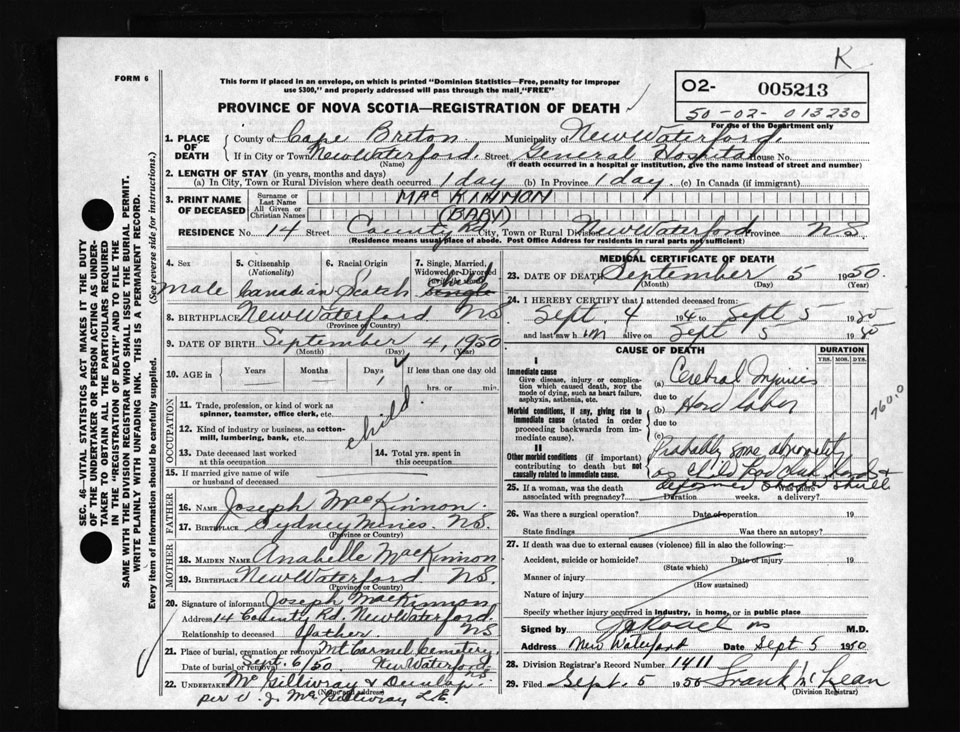 K
FORM 6
This form if placed in an envelope, on which is printed "Dominion Statistics—Free, penalty for improper
use $300," and properly addressed will pass through the mail, "FREE"
PROVINCE OF NOVA SCOTIA—REGISTRATION OF DEATH ✓
02- 005213
50-02-013230
For use of the Department only
1. PLACE OF DEATH
County of Cape Breton Municipality of New Waterford.
If in City or Town New Waterford. Street General Hospital House No.
(Name) (If death occurred in a hospital or institution, give the name instead of street and number)
2. LENGTH OF STAY (in years, months and days)
(a) In City, Town or Rural Division where death occurred 1 day (b) In Province 1 day. (c) In Canada (if immigrant)
3. PRINT NAME OF DECEASED
Surname or Last Name MacKINNON
All Given or Christian Names (BABY)
RESIDENCE No. 14 Street County Rd City, Town or Rural Division New Waterford Province N.S.
(Residence means usual place of abode. Post Office Address for residents in rural parts not sufficient)
4. Sex male
5. Citizenship (Nationality) Canadian
6. Racial Origin Scotch
7. Single, Married, Widowed or Divorced child single
8. BIRTHPLACE New Waterford NS
(Province or Country)
9. DATE OF BIRTH September 4, 1950
(Month) (Day) (Year)
10. AGE in Years Months Days 1 ✓ If less than one day old
hrs. or min.
OCCUPATION
11. Trade, profession, or kind of work as
spinner, teamster, office clerk, etc.
child.
12. Kind of industry or business, as cotton-
mill, lumbering, bank, etc.
13. Date deceased last worked
at this occupation
14. Total yrs. spent in
this occupation
15. If married give name of wife
or husband of deceased
FATHER
16. NAME Joseph MacKinnon.
17. BIRTHPLACE Sydney Mines. NS.
(Province or Country)
MOTHER
18. MAIDEN NAME Anabelle MacKinnon.
19. BIRTHPLACE New Waterford NS.
(Province or Country)
20. Signature of informant Joseph MacKinnon
Address 14 County Rd. New Waterford.
Relationship to deceased father. NS
21. Place of burial, cremation or removal Mt Carmel Cemetery
Date of burial or removal Sept. 6/50 New Waterford NS
22. UNDERTAKER McGillivray & Dunlap.
(Name and address)
MEDICAL CERTIFICATE OF DEATH
23. DATE OF DEATH September 5 1950.
(Month) (Day) (Year)
24. I HEREBY CERTIFY that I attended deceased from:
Sept. 4 19 to Sept 5 1950
and last saw h im alive on Sept 5 1950
CAUSE OF DEATH DURATION
YRS. MOS. DYS.
I
Immediate cause
Give disease, injury or complica-
tion which caused death, not the
mode of dying, such as heart failure,
asphyxia, asthenia, etc.
(a) Cerebral Injuries
due to
Morbid conditions, if any, giving rise to
immediate cause (stated in order
proceeding backwards from im-
mediate cause).
(b) Hard labor
due to
(c)
760.0
II
Other morbid conditions (if important)
contributing to death but not
causally related to immediate cause.
Probably some abnormality
as child had club hands &
deformed skull
25. If a woman, was the death
associated with pregnancy? Duration weeks. Was there a delivery?
26. Was there a surgical operation? Date of operation 19
State findings Was there an autopsy?
27. If death was due to external causes (violence) fill in also the following:—
Accident, suicide or homicide? Date of injury 19
(State which)
Manner of injury
(How sustained)
Nature of injury
Specify whether injury occurred in industry, in home, or in public place
Signed by M.D.
Address New Waterford Date Sept 5 1950
28. Division Registrar's Record Number 1411
29. Filed Sept. 5 1950 Frank McLean
(Division Registrar)
SEC. 46—VITAL STATISTICS ACT MAKES IT THE DUTY
OF THE UNDERTAKER OR PERSON ACTING AS UNDER-
TAKER TO OBTAIN ALL THE PARTICULARS REQUIRED
IN THE "REGISTRATION OF DEATH" AND TO FILE THE
SAME WITH THE DIVISION REGISTRAR WHO SHALL ISSUE THE BURIAL PERMIT.
WRITE PLAINLY WITH UNFADING INK. THIS IS A PERMANENT RECORD.
Every item of information should be carefully supplied. (See reverse side for instructions).
per V. J. McGillivray L.E.